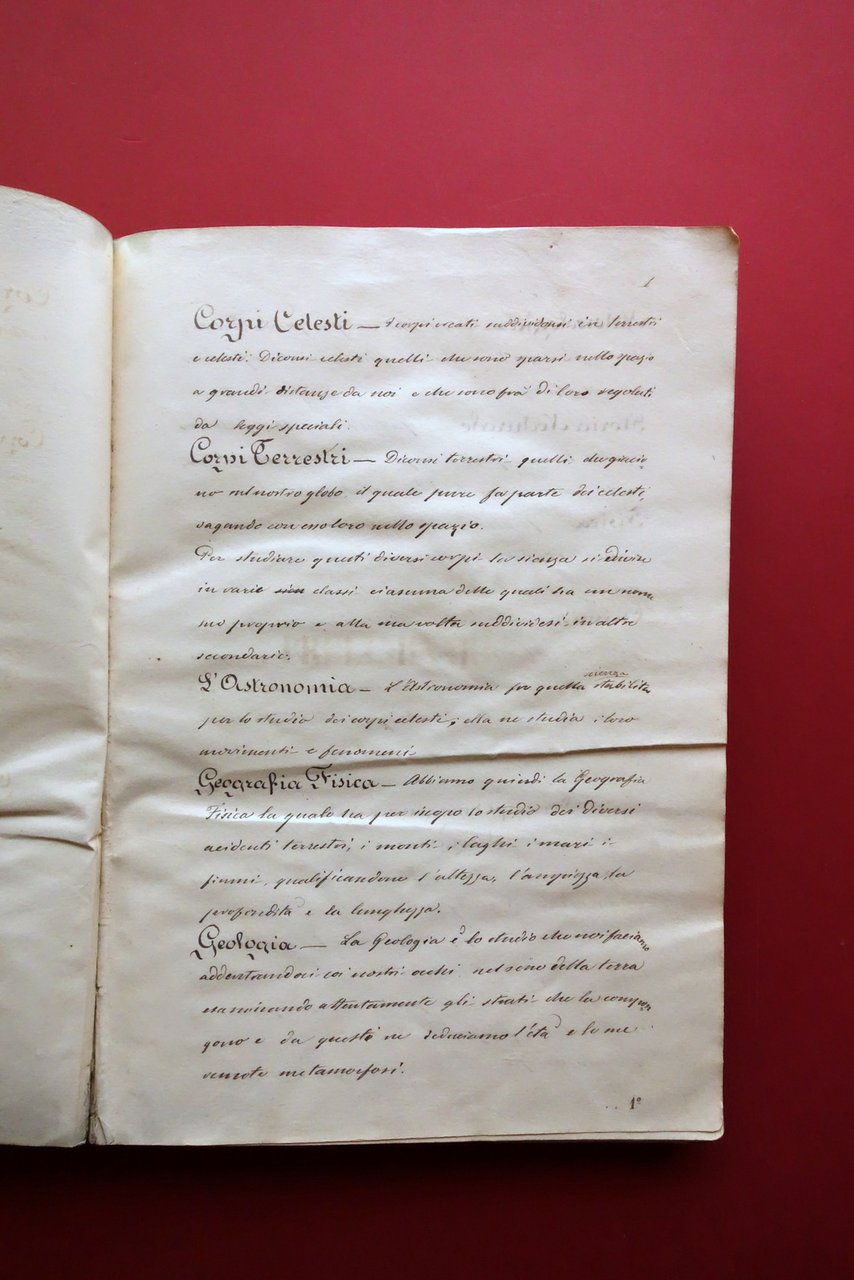 1
Corpi Celesti — I corpi creati suddividonsi in terrestri
e celesti. Diconsi celesti quelli che sono sparsi nello spazio
a grandi distanze da noi e che sono frà di loro regolati
da leggi speciali.
Corpi Terrestri — Diconsi terrestri quelli che giacio
no nel nostro globo, il quale pure fa parte dei celesti,
vagando con esso loro nello spazio.
Per studiare questi diversi corpi la sienza si divise
in varie classi ciascuna delle quali ha un nome
suo proprio e alla sua volta suddividesi in altre
secondarie.
L'Astronomia — L'Astronomia fu quella sienza stabilita
per lo studio dei corpi celesti; ella ne studia i loro
movimenti e fenomeni
Geografia Fisica — Abbiamo quindi la Geografia
Fisica la quale ha per iscopo lo studio dei diversi
acidenti terrestri, i monti, i laghi i mari i
fiumi, qualificandone l'altezza, l'ampiezza, la
profondità e la lunghezza.
Geologia — La Geologia è lo studio che noi faciamo
addentrandoci coi nostri occhi nel seno della terra
esaminando attentamente gli strati che la compon
gono e da questi ne deduciamo l'età e le sue
remote metamorfosi.
1º